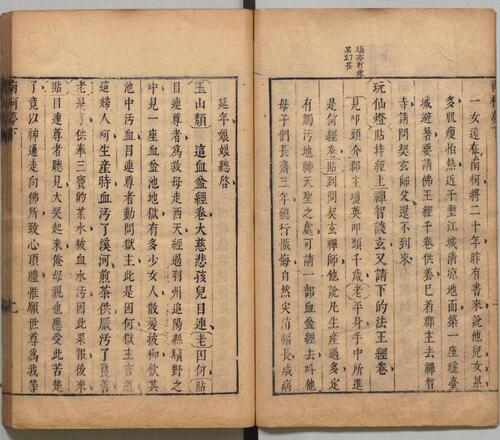 一女遠在南柯將二十年昨有書來說他兒女累
多肌瘦怕熱近于壍江城清凉地面築一座瑤臺
城避暑要請佛王經千卷供養巳着郡主去禪智
寺請問契玄師父還不到來
玩仙燈貼持經上禪智談玄又請下的法王經卷
見叩頭介郡主瓊英叩頭千歲老平身手中所進
是何經卷貼到問契玄禪師他說凡生産過多定
有觸汚地神天聖之處可請一部血盆經去叫他
母子們長齋三年總行懺悔自然災消福長減病
延年娘娘聽啓
玉山頹 這血盆經卷大慈悲孩兒目連老因何貼
目連尊者爲救母走西天經過羽州追陽縣曠野之
中見一座血盆池地獄有多少女人散髮披枷飲其
池中汚血目連尊者動問獄主此是因何獄主言道
這婦人呵生産時血汚了溪河煎茶供厭汚了良善
老是了供奉三寶的茶水被血水汚因此果報後來
貼目連尊者聽見大哭起來俺母親也應受此苦楚
了竟以神通走向佛所致心頂禮惟願世尊爲我等
南柯夢下